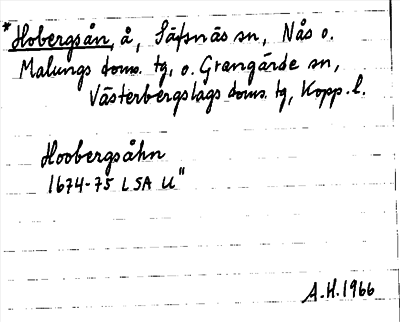 *Hobergsån, å, Säfsnäs sn, Nås o.
Malungs doms. tg, o. Grangärde sn,
Västerbergslags doms. tg, Kopp. l.
Hoobergsåhn
1674-75 LSA U"
A.H.1966